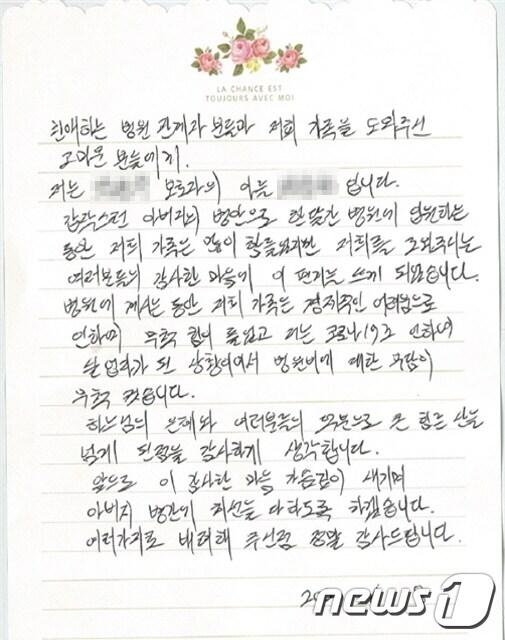 LA CHANCE EST
TOUJOURS AVEC MOI
친애하는 병원 관계자 분들과 저희 가족을 도와주신
고마운 분들에게.
저는 보호자의 아들 입니다.
갑작스런 아버지의 병환으로 한달간 병원에 입원하는
동안 저희 가족은 많이 힘들었지만 저희를 도와주시는
여러분들의 감사한 마음에 이 편지를 쓰게 되었습니다.
병원에 계시는 동안 저희 가족은 경제적인 어려움으로
인하여 무척 힘이 들었고 저는 코로나19로 인하여
실업자가 된 상황이여서 병원비에 대한 부담이
무척 컸습니다.
하느님의 은혜와 여러분들의 덕분으로 큰 힘든 산을
넘게 된점을 감사하게 생각합니다.
앞으로 이 감사한 마음 가슴깊이 새기며
아버지 병간에 최선을 다하도록 하겠습니다.
여러가지로 배려해 주신점 정말 감사드립니다.
news1